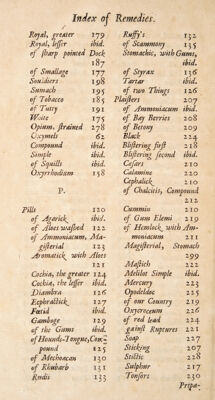 Index of Remedies.
Royal, greater 179
Royal, lesser ibid.
of sharp pointed Dock
187
of Smallage 177
Souldiers 198
Sumach 195
of Tobacco 185
of Tutty 191
White 175
Opium, strained 278
Oxymels 62
Compound ibid.
Simple ibid.
of Squills ibid.
Oxyrrhodium 158
P.
Pills 120
of Agarick ibid.
of Aloes washed 122
of Ammoniacum, Ma-
gisterial 123
Aromatick with Aloes
121
Cochia, the greater 124
Cochia, the lesser ibid.
Diambra 126
Ephraltick 127
Fœtid ibid.
Gamboge 129
of the Gums ibid.
of Hounds-Tongue, Com-
pound 125
of Mechoacan 130
of Rhubarb 131
Rudii 133
Ruffy's 132
of Scammony 135
Stomachic, with Gums,
ibid.
of Styrax 136
Tartar ibid.
of two Things 126
Plaisters 207
of Ammoniacum ibid.
of Bay Berries 208
of Betony 209
Black 224
Blistering first 218
Blistering second ibid.
Cesars 210
Calamine 220
Cephalick 210
of Chalcitis, Compound
212
Cummin 210
of Gum Elemi 219
of Hemlock, with Am-
moniacum 211
Magisterial, Stomach
299
Mastich 222
Melilot Simple ibid.
Mercury 223
Opodeldoc 225
of our Country 219
Oxycroceum 226
of red Lead 224
against Ruptures 221
Soap 227
Sticking 207
Stictic 228
Sulphur 217
Tonsors 230
Prepa-